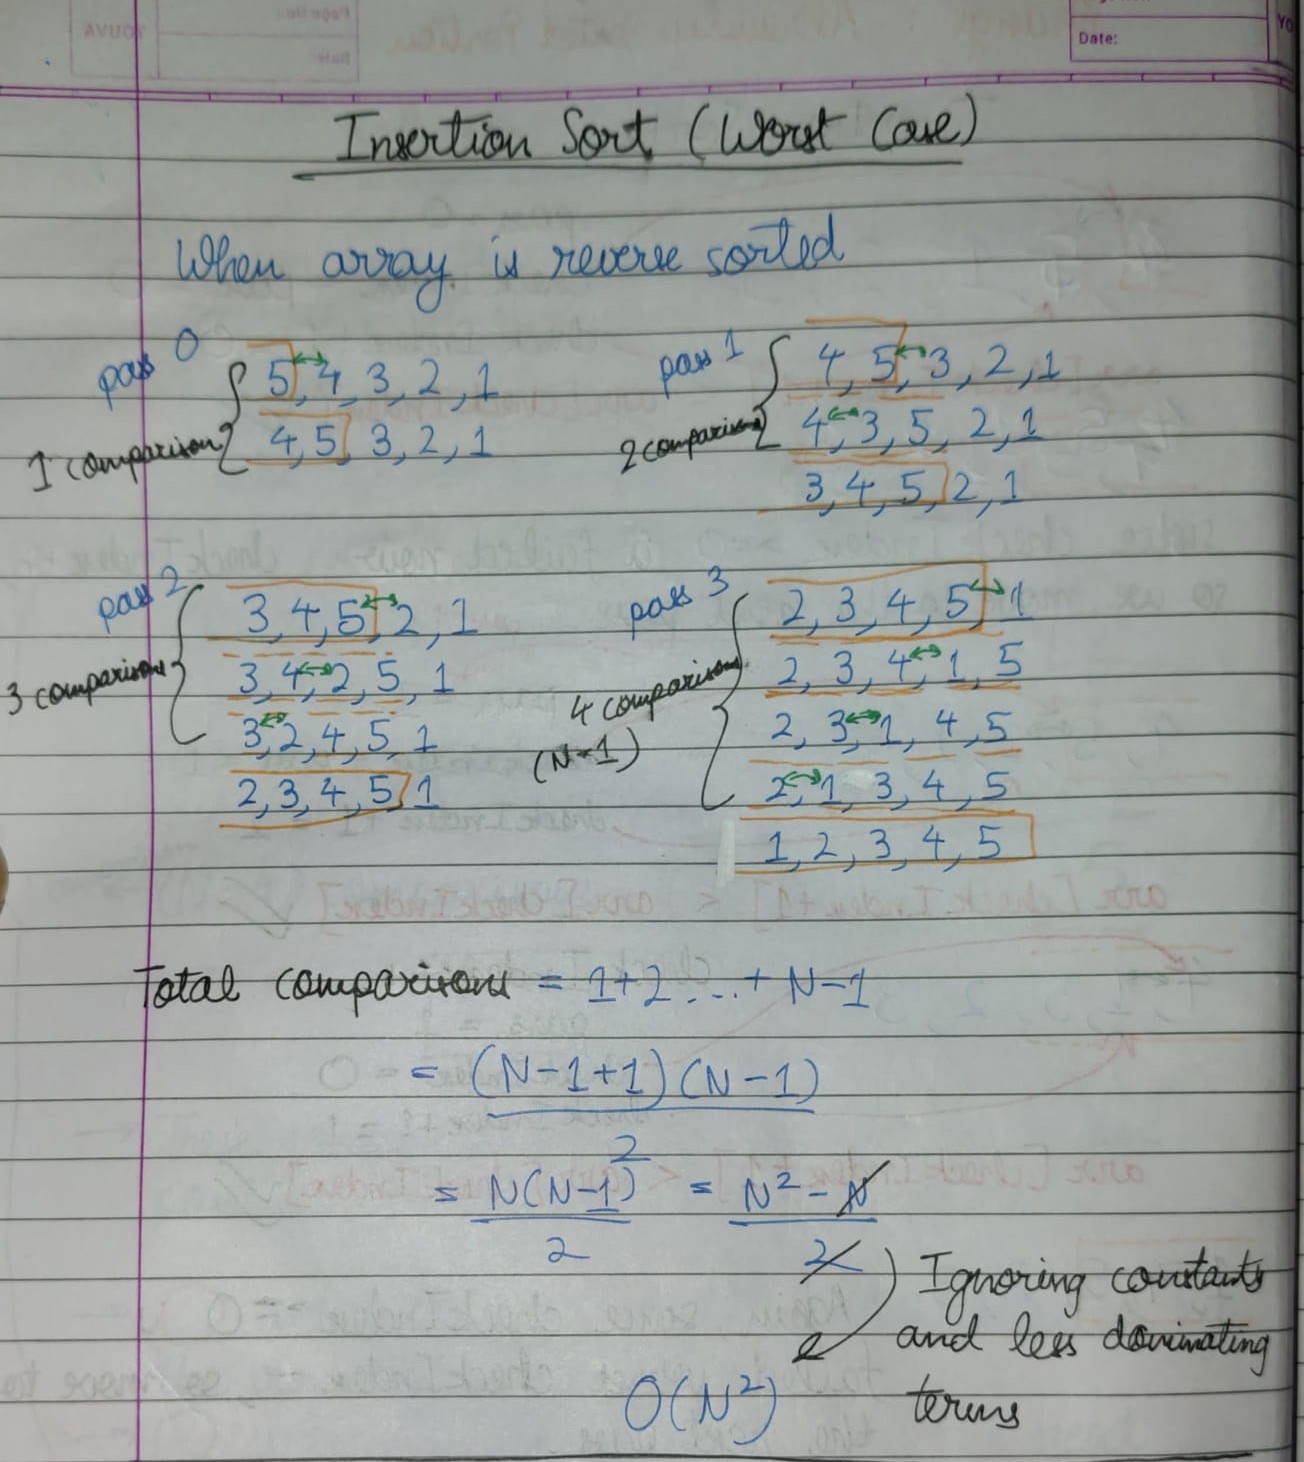 Date:
Insertion Sort (Worst Case)
When array is reverse sorted
pass 0
1 comparison
5, 4, 3, 2, 1
4, 5, 3, 2, 1
pass 1
2 comparison
4, 5, 3, 2, 1
4, 3, 5, 2, 1
3, 4, 5, 2, 1
pass 2
3 comparison
3, 4, 5, 2, 1
3, 4, 2, 5, 1
3, 2, 4, 5, 1
2, 3, 4, 5, 1
pass 3
4 comparison
(N-1)
2, 3, 4, 5, 1
2, 3, 4, 1, 5
2, 3, 1, 4, 5
2, 1, 3, 4, 5
1, 2, 3, 4, 5
Total comparisons = 1+2 ... + N-1
= (N-1+1)(N-1)
2
= N(N-1) = N² - N
2 2
Ignoring constants
and less dominating
terms
O(N²)